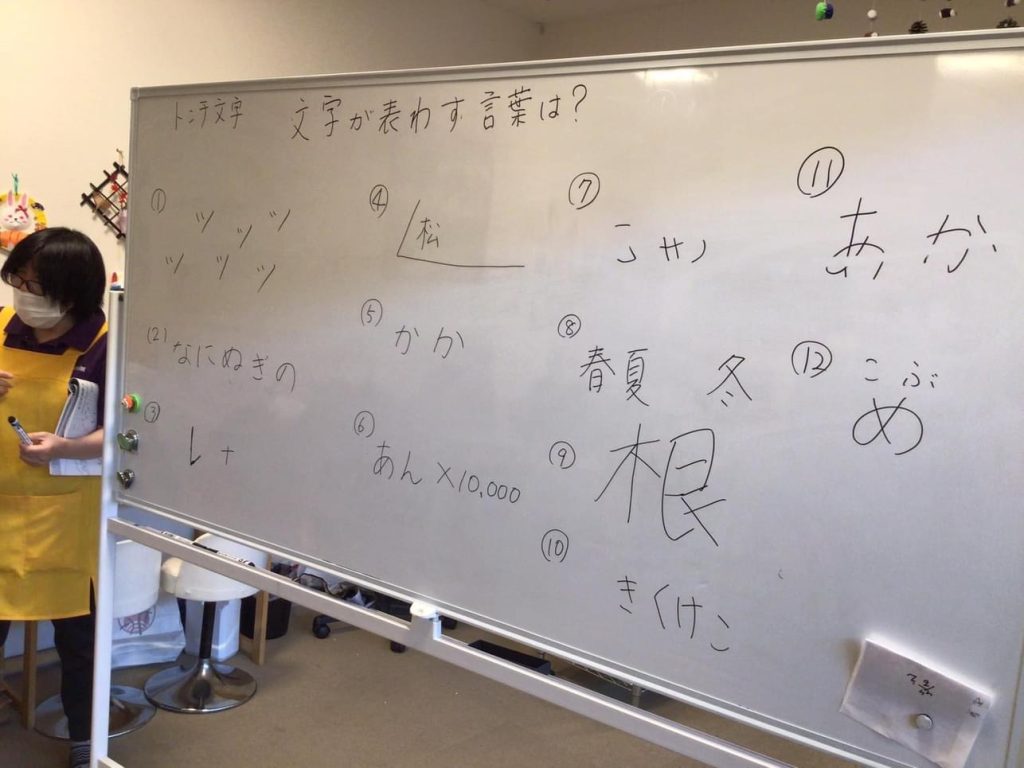 トンチ文字 文字が表わす言葉は?
①
ツ ツ ツ
ツ ツ ツ
(2) なにぬぎの
③ レ +
④ 松
⑤ かか
⑥ あん×10,000
⑦
⑧ 春夏 冬
⑨ 根
⑩ きくけこ
⑪ あ か
⑫ こぶ
め